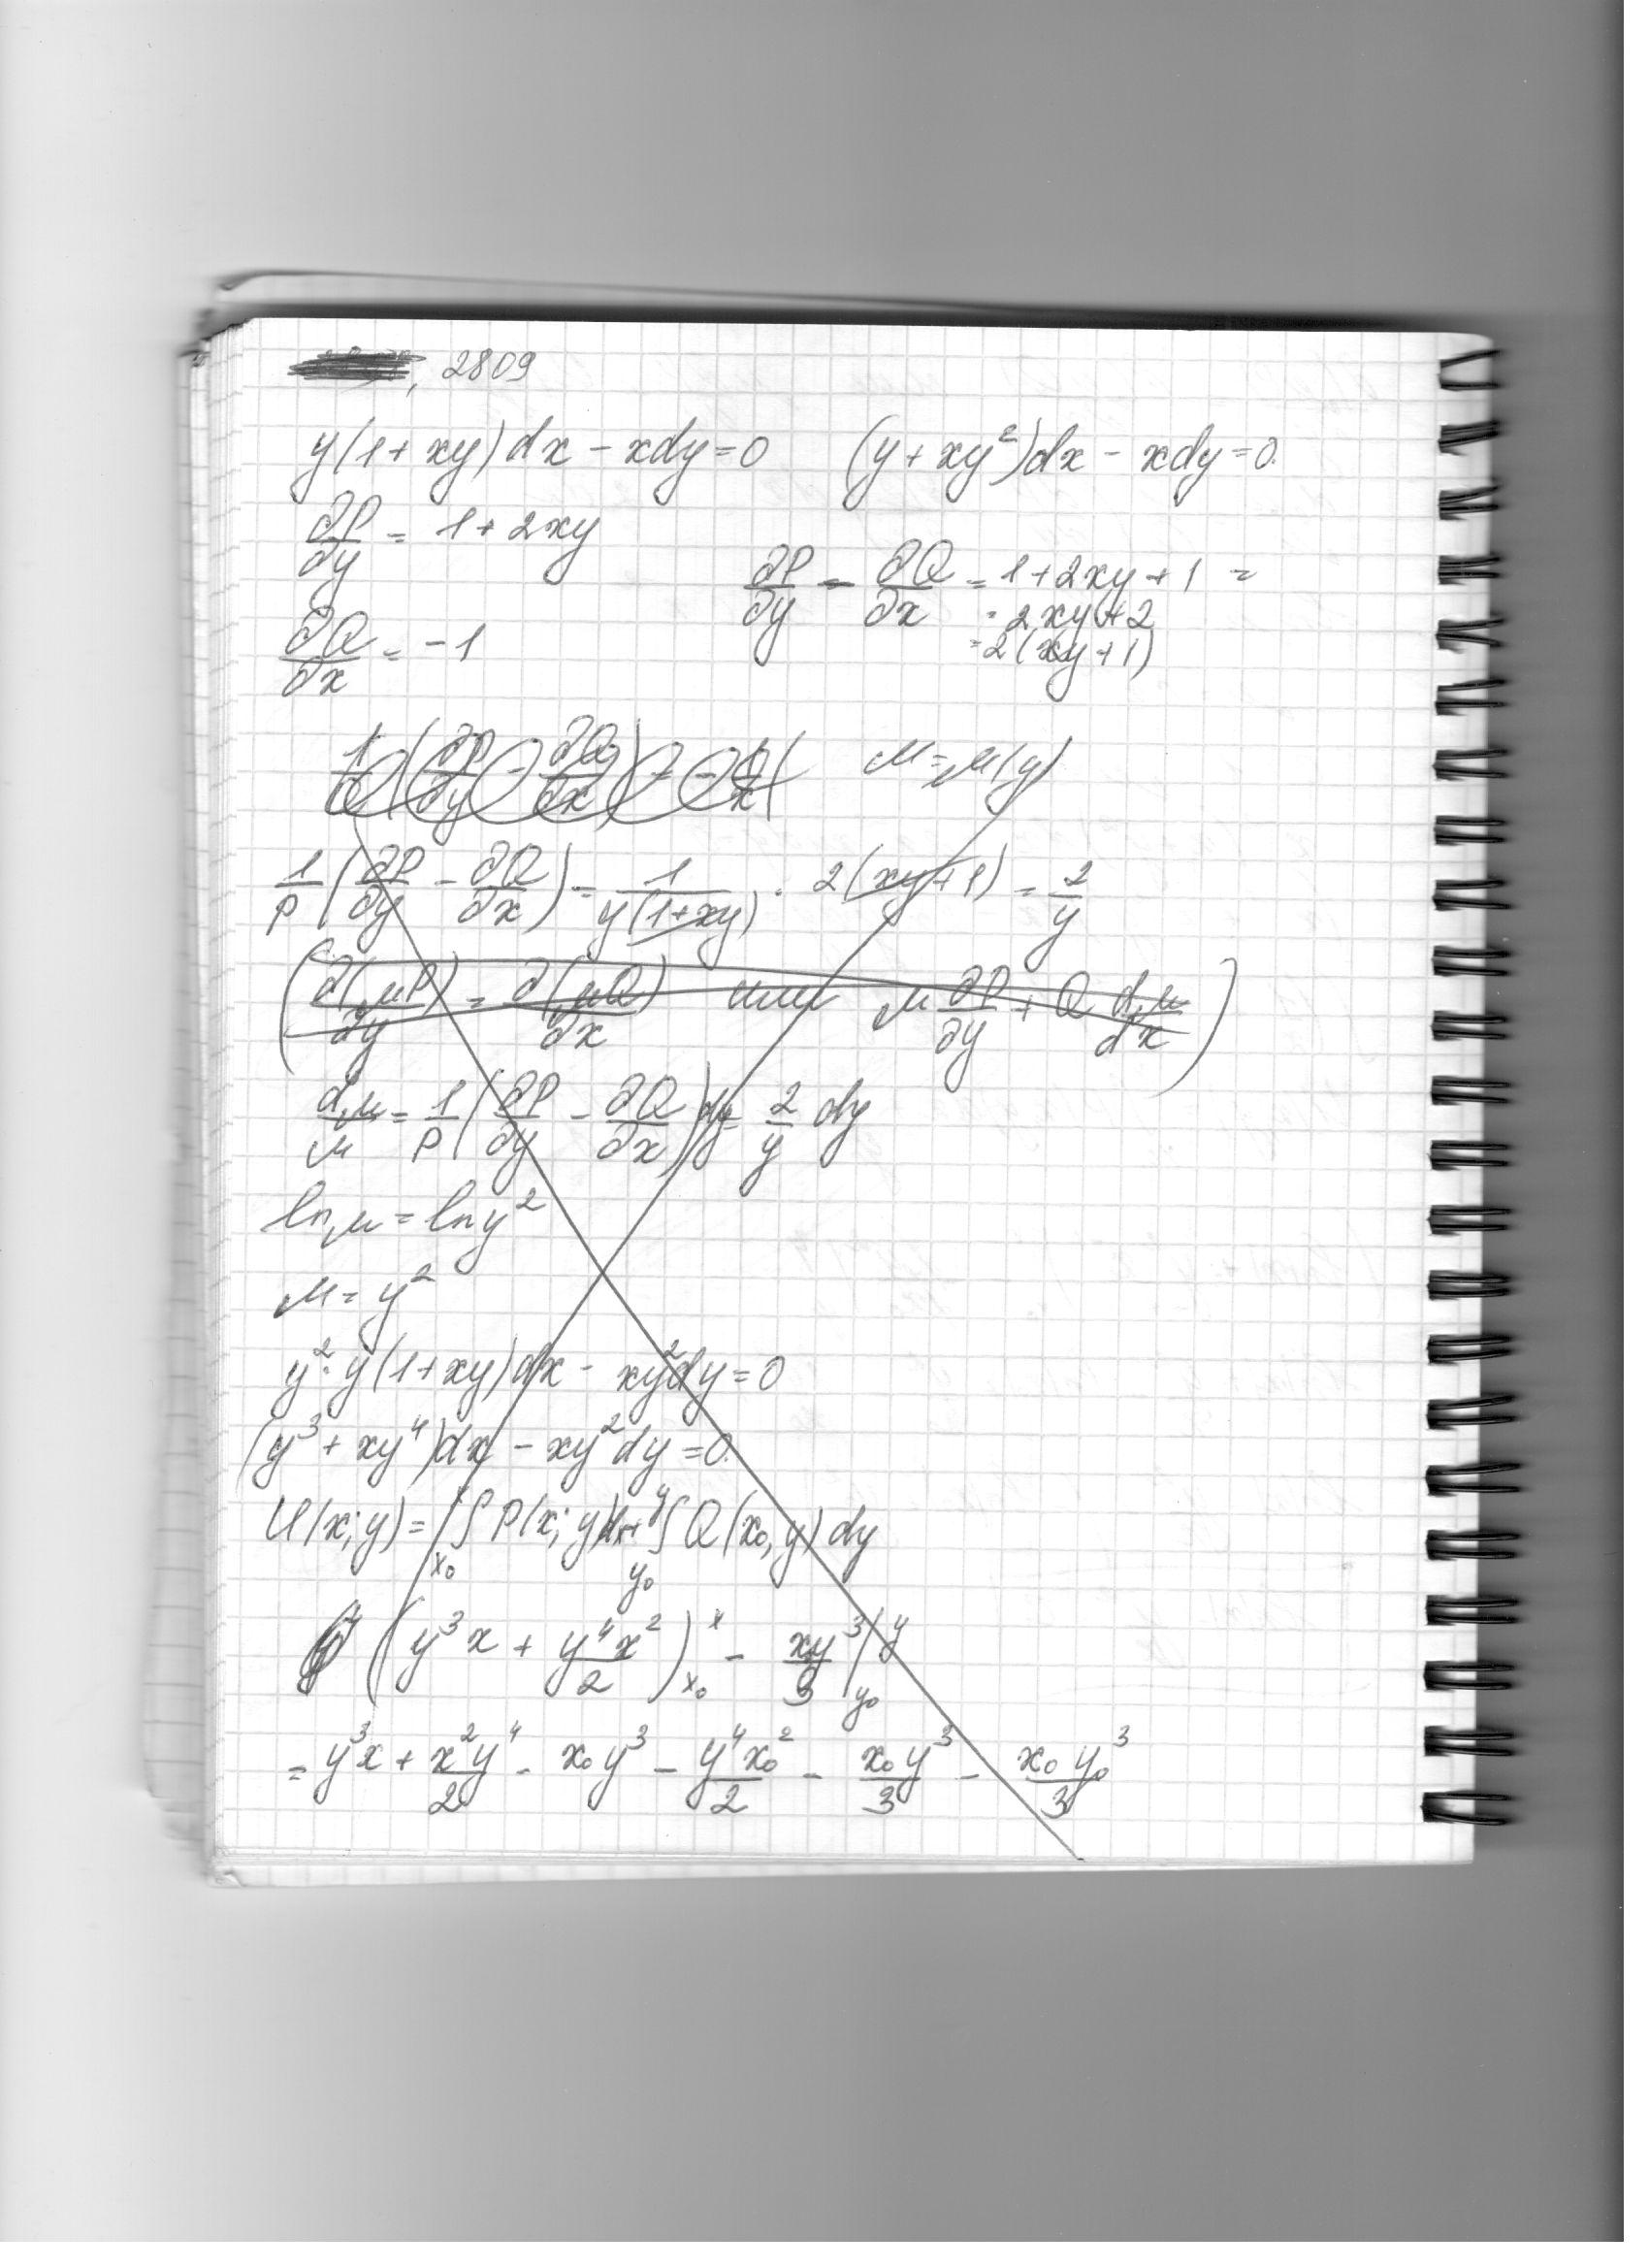 , 2809
y(1+xy)dx - xdy=0 (y+xy²)dx - xdy=0.
∂P/∂y = 1+2xy
∂P/∂y - ∂Q/∂x = 1+2xy+1 =
= 2xy+2
= 2(xy+1)
∂Q/∂x = -1
1/Q(∂P/∂y - ∂Q/∂x) = - μ=μ(y)
1/P(∂P/∂y - ∂Q/∂x) = 1/y(1+xy) · 2(xy+1) = 2/y
(∂(μP)/∂y = ∂(μQ)/∂x или μ∂P/∂y + Q dμ/dx)
dμ/μ = 1/P(∂P/∂y - ∂Q/∂x)dy = 2/y dy
lnμ = lny²
μ = y²
y²·y(1+xy)dx - xy²dy=0
(y³+xy⁴)dx - xy²dy=0.
U(x;y) = ∫ₓ₀ˣ P(x;y)dx+ ∫y₀^y Q(x₀,y)dy
(y³x + y⁴x²/2)ₓ₀ˣ - xy³/3 |y₀^y
= y³x + x²y⁴/2 - x₀y³ - y⁴x₀²/2 - x₀y³/3 - x₀y₀³/3